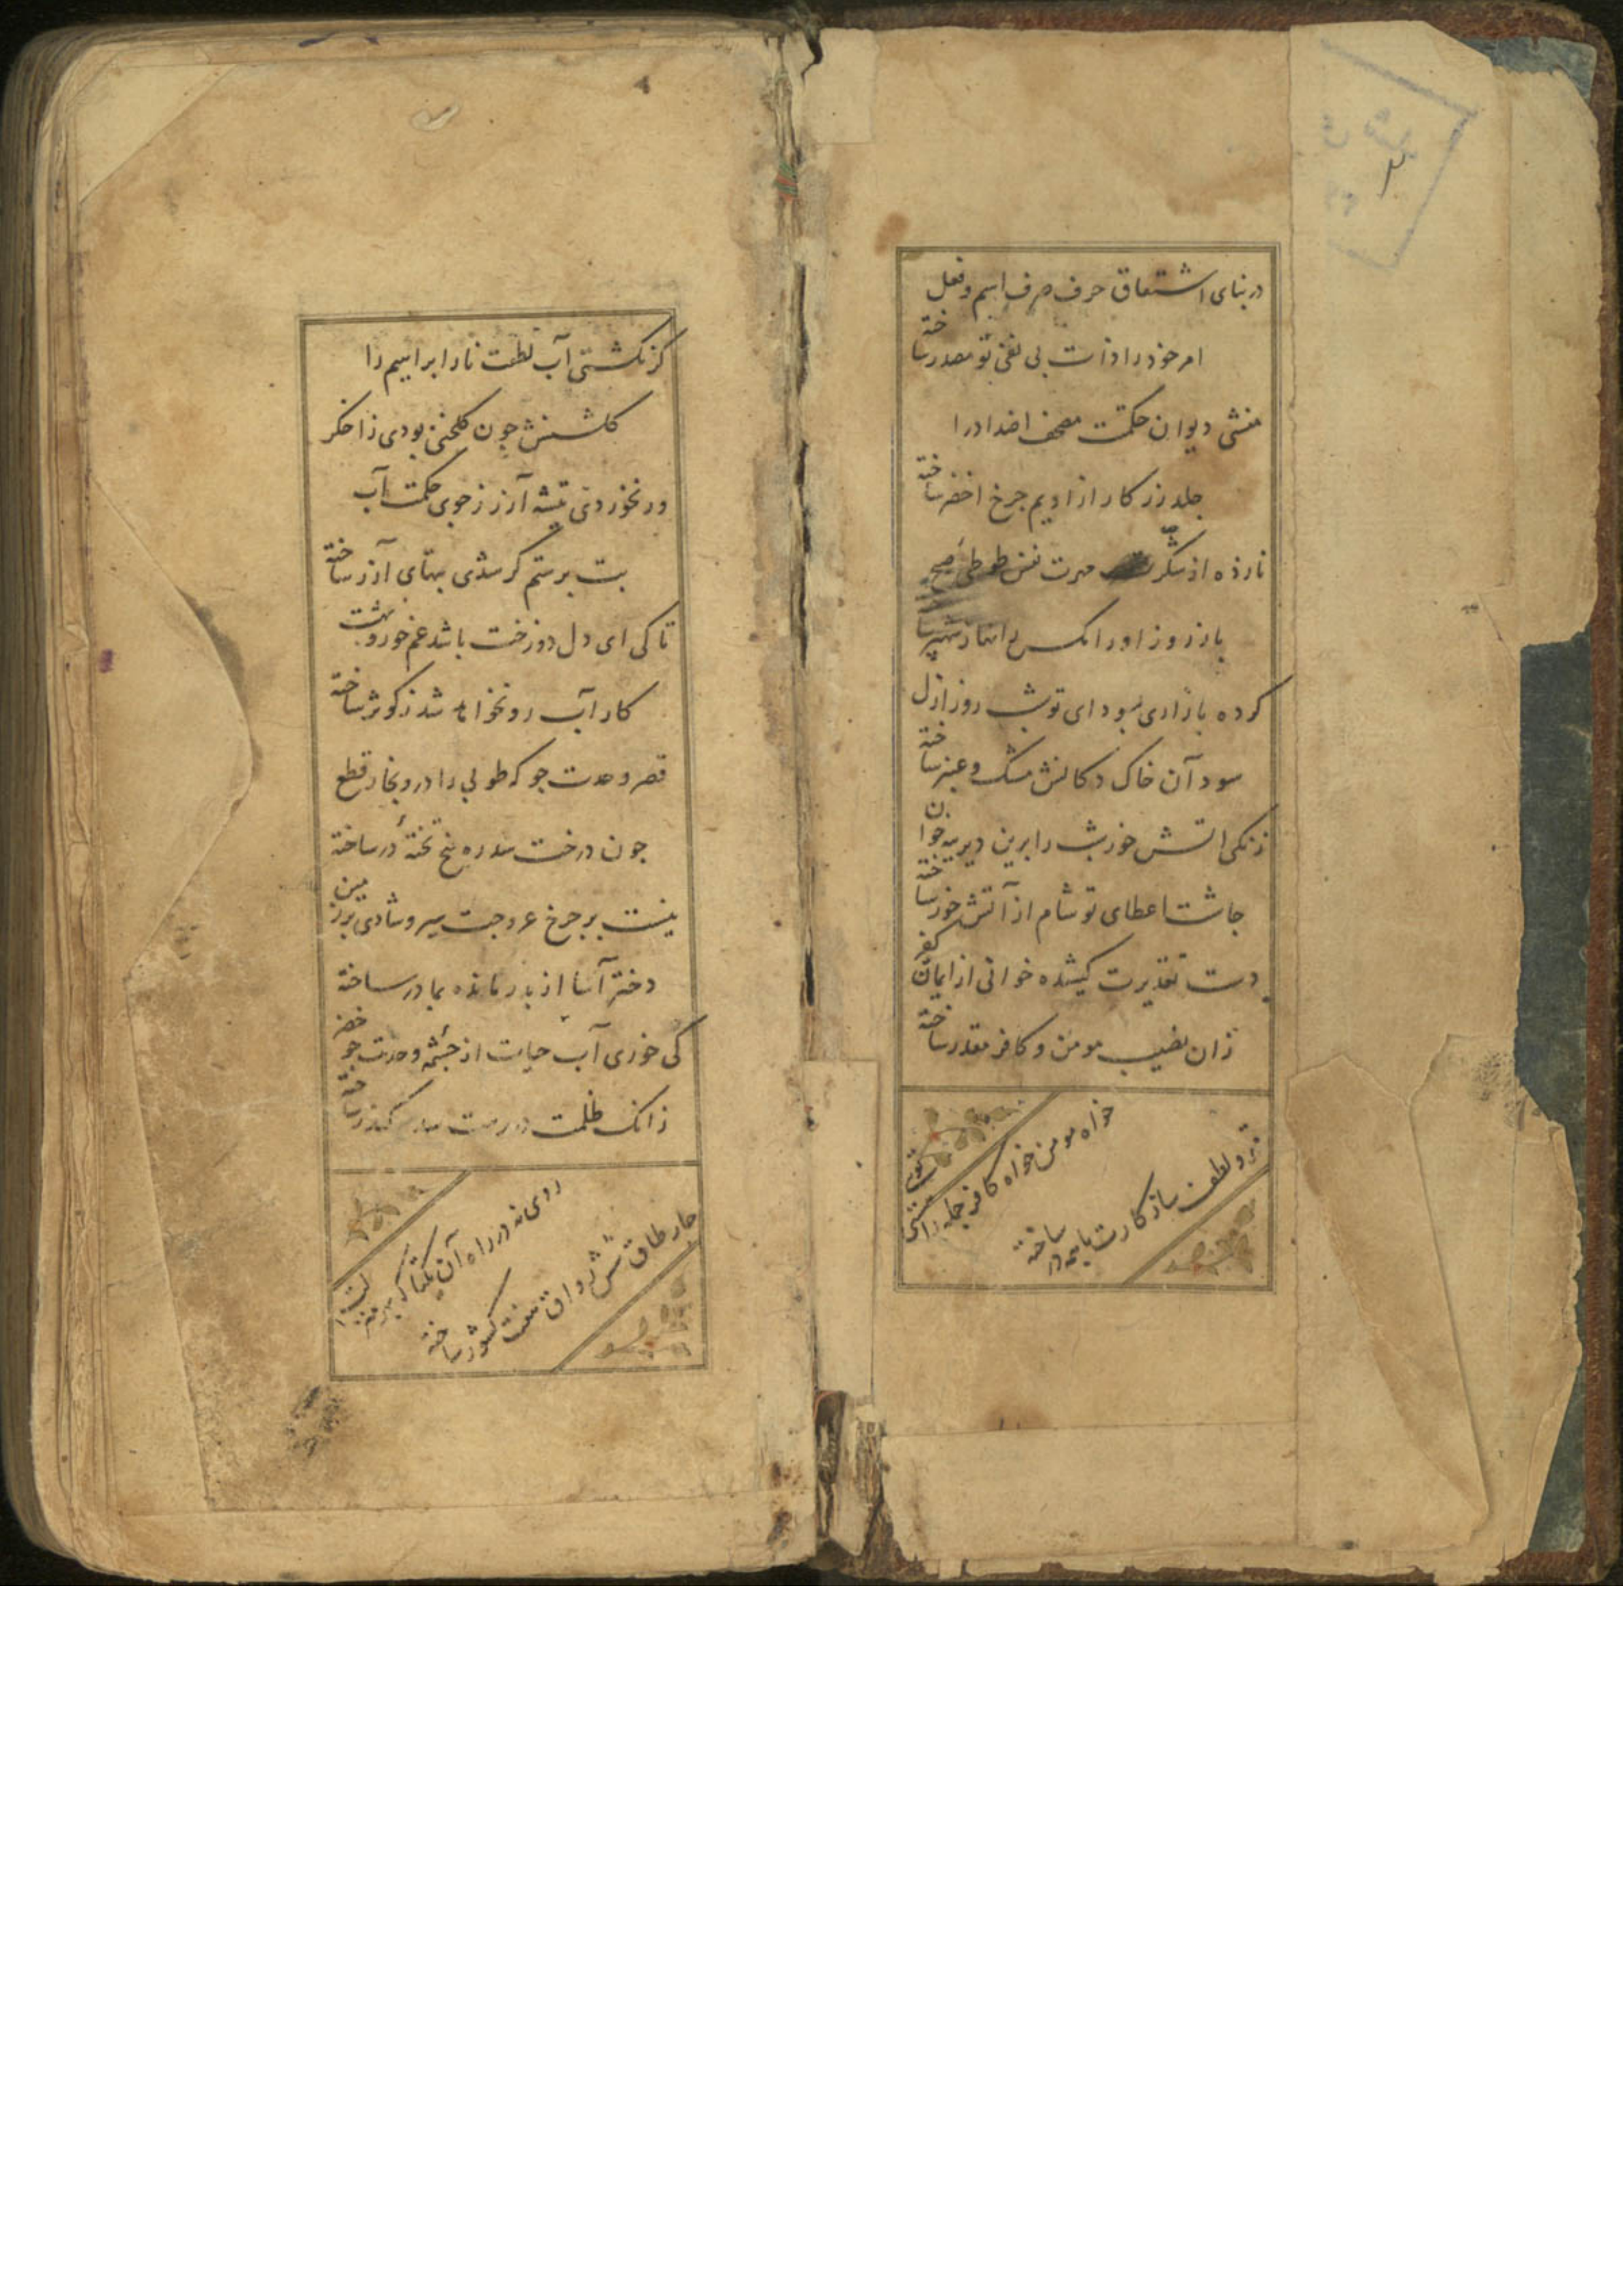 در بنای اشتقاق حرف صرف اسم و فعل
امر خود را ذات بی نفی تو مصدر ساخته
منشی دیوان حکمت مصحف اضداد را
جلد زر کار از ادیم چرخ اخضر ساخته
تا زده از شکر نفس طوطی صبح
باز روز او را
کرده بازاری بسودای تو شب روز ازل
سود آن خاک دکانش مشک و عنبر ساخته
زنکی آتش خور شب را برین دیرینه خوان
چاشت اعطای تو شام از آتش خور ساخته
دست تقدیرت کشیده خوانی از ایمان و کفر
زان نصیب مومن و کافر مقدر ساخته
خواه مومن خواه کافر جمله را
قهر و لطف ساز کارت با همه در ساخته
کر نکشتی آب لطفت نار ابراهیم را
کلشنش چون کلخنی بودی ز اخکر
ور نخوردی تیشه آزر ز جوی حکمت آب
بت پرستم کر شدی بتهای آزر ساخته
تا کی ای دل دوزخت باشد غم حور و بهشت
کار آب رو نخواهد شد ز کوثر ساخته
قصر وحدت جو که طوبی را درو نجار قطع
چون درخت سدره پنج تختهٔ در ساخته
نیست بر چرخ عروجت سیر و شادی بر زمین
دختر آسا از پدر مانده بمادر ساخته
کی خوری آب حیات از چشمهٔ وحدت چو خضر
زانک ظلمت در رهت سد سکندر ساخته
روی نه در راه آن یکتا که بهر
چار طاق شش رواق هفت کشور ساخته